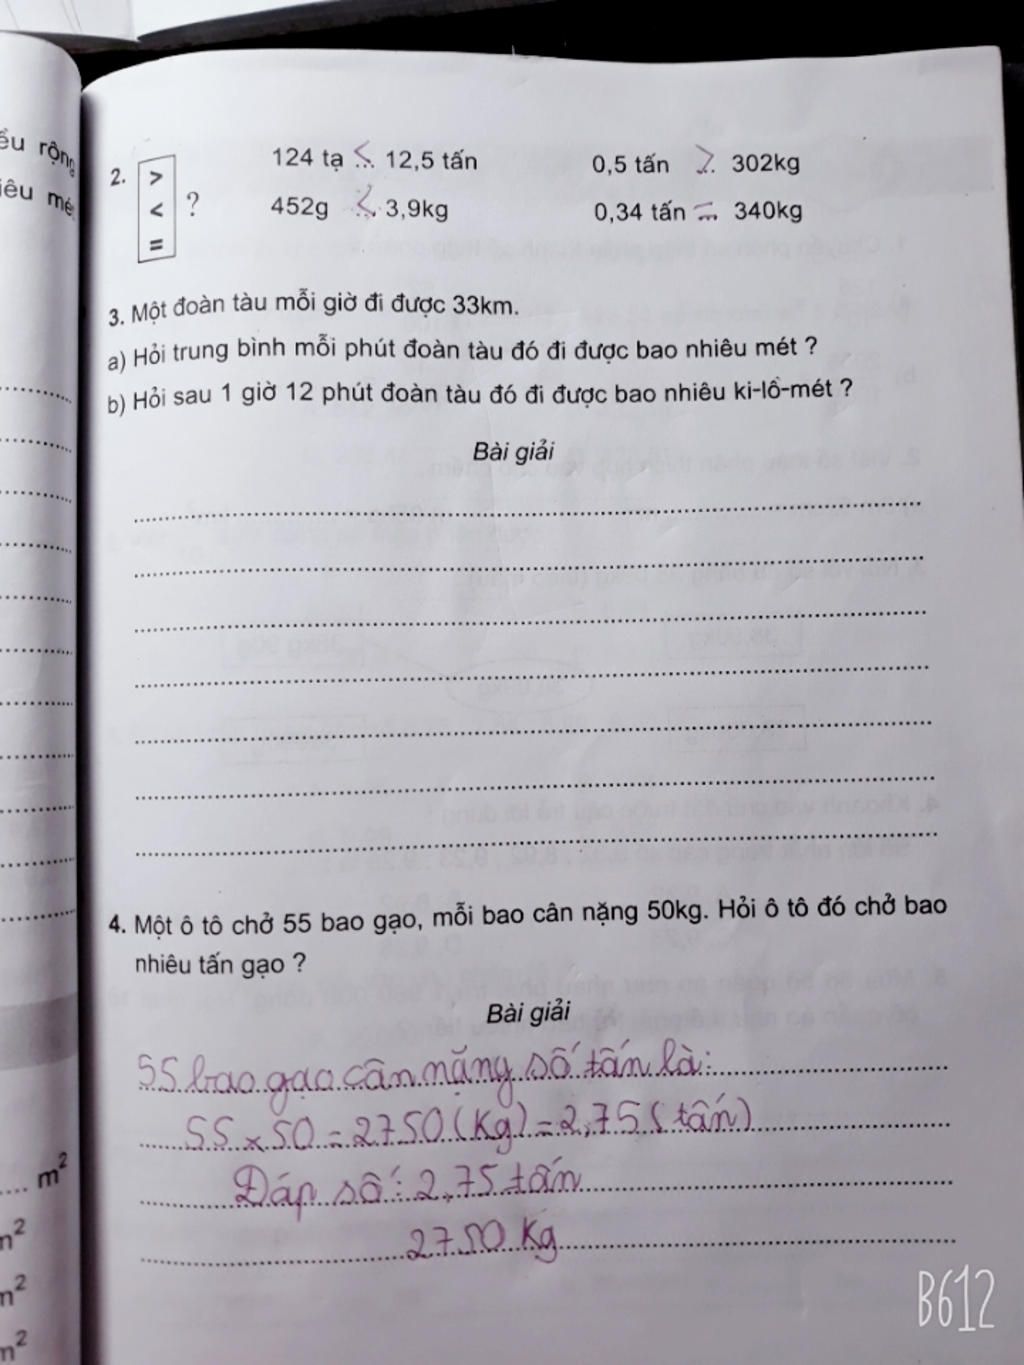 ểu rộng
iêu mé
2. > < = ?
124 tạ < 12,5 tấn
0,5 tấn > 302kg
452g < 3,9kg
0,34 tấn = 340kg
3. Một đoàn tàu mỗi giờ đi được 33km.
a) Hỏi trung bình mỗi phút đoàn tàu đó đi được bao nhiêu mét ?
b) Hỏi sau 1 giờ 12 phút đoàn tàu đó đi được bao nhiêu ki-lô-mét ?
Bài giải
4. Một ô tô chở 55 bao gạo, mỗi bao cân nặng 50kg. Hỏi ô tô đó chở bao
nhiêu tấn gạo ?
Bài giải
55 bao gạo cân nặng số tấn là:
55 x 50 = 2750 (Kg) = 2,75 (tấn)
Đáp số : 2,75 tấn
2750 Kg
.... m²
m²
m²
m²
B612